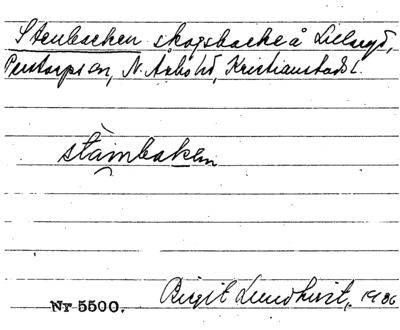 Stenbacken skogsbacke å Lillaryd,
Perstorps sn, N. Åsbo hd, Kristianstads l.
stämbaken
Nr 5500. Birgit Lundkvist, 1936